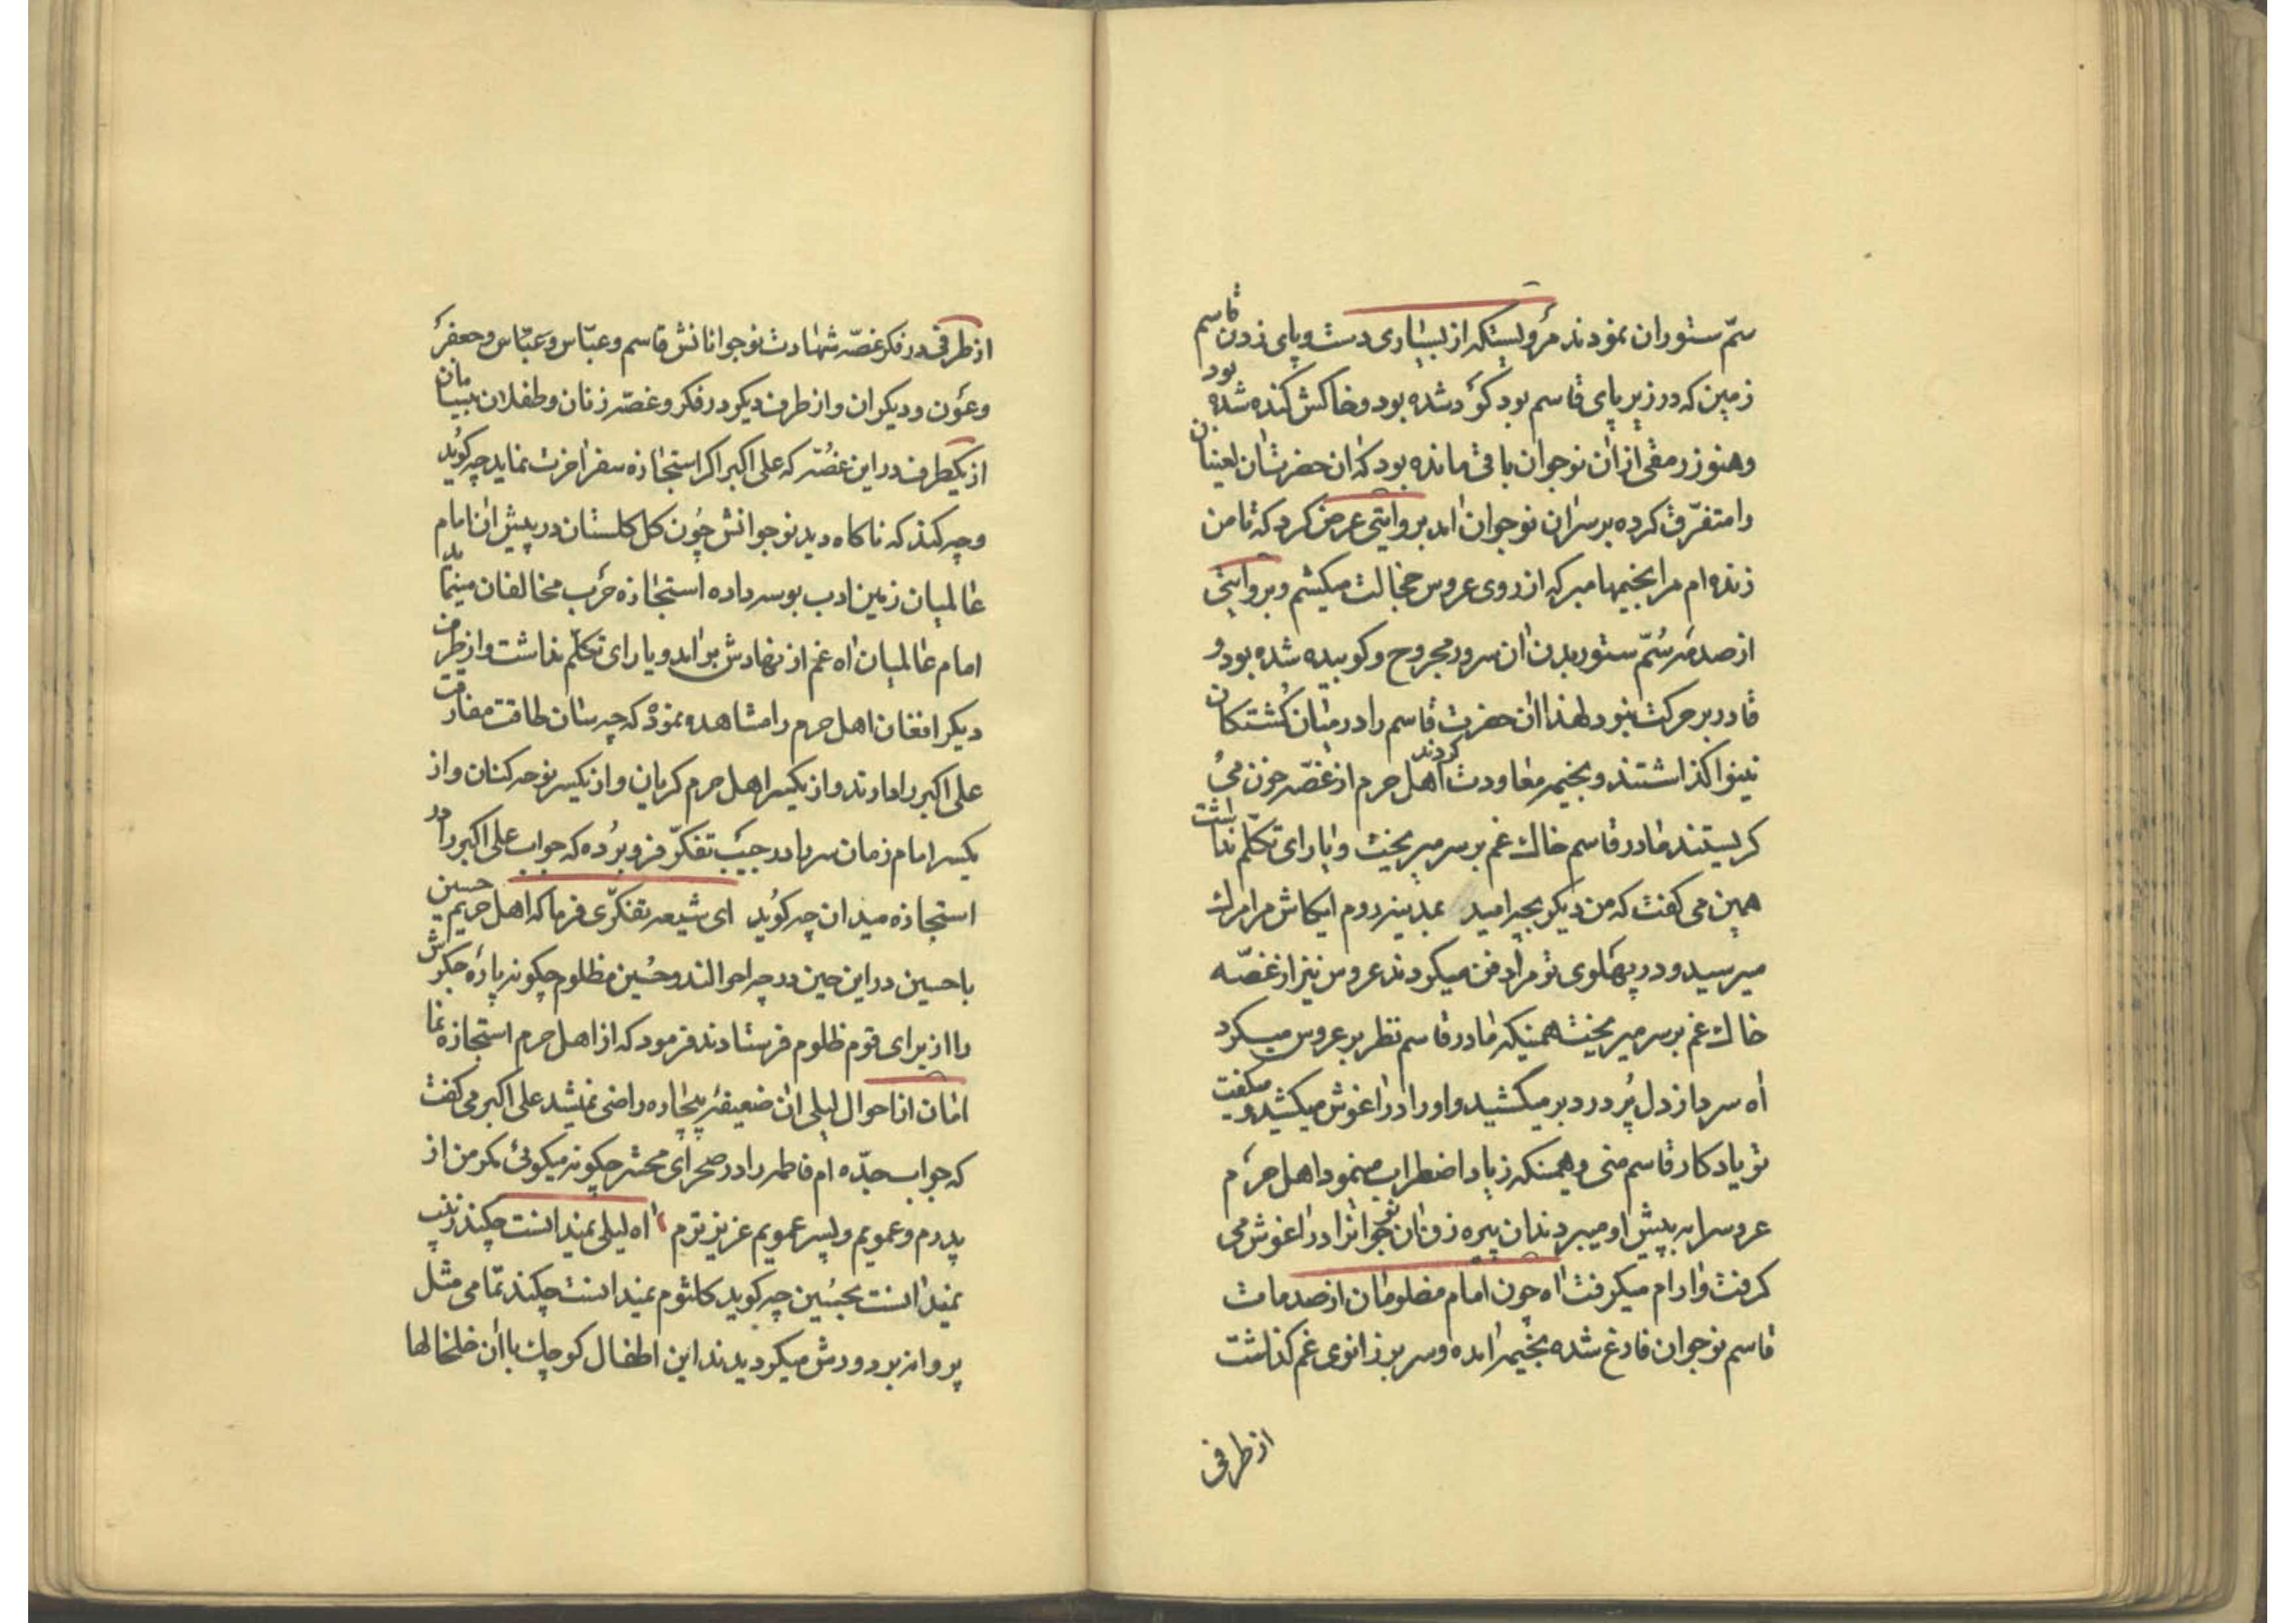 سمّ ستوران نمودند مرویستکه از بسیاری دست و پای زدن قاسم
زمین که در زیر پای قاسم بود گود شده بود و خاکش کنده شده بود
و هنوز رمقی از ان نوجوان باقی مانده بود که ان حضرت ان لعینان
را متفرّق کرده بر سر ان نوجوان امد بروایتی عرض کرد که تا من
زنده ام مرا بخیمها مبر که از روی عروس خجالت میکشم و بروایتی
از صدمه سُمّ ستور بدن ان سرور مجروح و کوبیده شده بود و
قادر بر حرکت نبود لهذا ان حضرت قاسم را در میان کُشتکان
نینوا کذاشتند و بخیمه معاودت کردند اهل حرم از غصّه خون می
کریستند مادر قاسم خاك غم بر سر میریخت و یارای تکلّم نداشت
همین می کفت که من دیکر بچه امید بمدینه روم ایکاش مرا مرك
میرسید و در پهلوی تو مرا دفن میکردند عروس نیز از غصّه
خاك غم بر سر میریخت همینکه مادر قاسم نظر بر عروس میکرد
اه سرد از دل پُر درد بر میکشید و او را در اغوش میکشید و میکفت
تو یادکار قاسم منی و همینکه زیاد اضطراب مینمود اهل حرم
عروسرا به پیش او میبردند ان پیره زن ان نو جوانرا در اغوش می
کرفت و ارام میکرفت اه چون امام مظلومان از صدمات
قاسم نوجوان فارغ شده بخیمه امده و سر بر زانوی غم کذاشت
از طرفی
از طرفی در فکر غصّه شهادت نوجوانانش قاسم و عبّاس و عبّاس و جعفر
و عون و دیکران و از طرف دیکر در فکر و غصّه زنان و طفلان بیسامان
از یکطرف در این غصّه که علی اکبر اکر استجازه سفر اخرت نماید چه کوید
و چه کند که ناکاه دید نوجوانش چون کل کلستان در پیش ان امام
عالمیان زمین ادب بوسه داده استجازه حَرب مخالفان مینماید
امام عالمیان اه غم از نهادش بر امد و یارای تکلّم نداشت و از طرف
دیکر افغان اهل حرم را مشاهده نمود که چه سان طاقت مفارقت
علی اکبر را دارند و از یکسر اهل حرم کریان و از یکسر نوحه کنان و از
یکسر امام زمان سر را در جیب تفکّر فرو برُده که جواب علی اکبر را در
استجازه میدان چه کوید ای شیعه تفکّری فرما که اهل حریم حسین
با حسین در این حین در چه احوالند و حُسین مظلوم چکونه پارۀ جکرش
را از برای قوم ظلوم فرستادند فرمود که از اهل حرم استجازه نما
امان از احوال لیلی ان ضعیفۀ بیچاره راضی نمیشد علی اکبر می کفت
که جواب جدّه ام فاطمه را در صحرای محشر چکونه میکوئی مکر من از
پدرم و عمویم و پسر عمویم عزیز ترم اه لیلی نمیدانست چکند زینب
نمیدانست بحُسین چه کوید کلثوم نمیدانست چکند تمامی مثل
پروانه بر دورش میکردیدند این اطفال کوچك با ان خلخالها